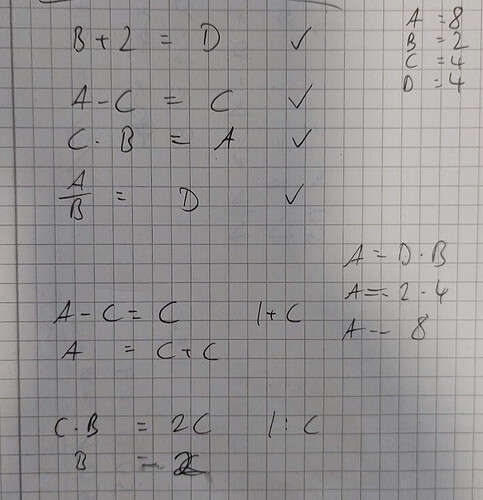 B + 2 = D ✓
A = 8
B = 2
C = 4
D = 4
A - C = C ✓
C · B = A ✓
A/B = D ✓
A = D · B
A = 2 · 4
A = 8
A - C = C |+ C
A = C + C
C · B = 2C |: C
B =